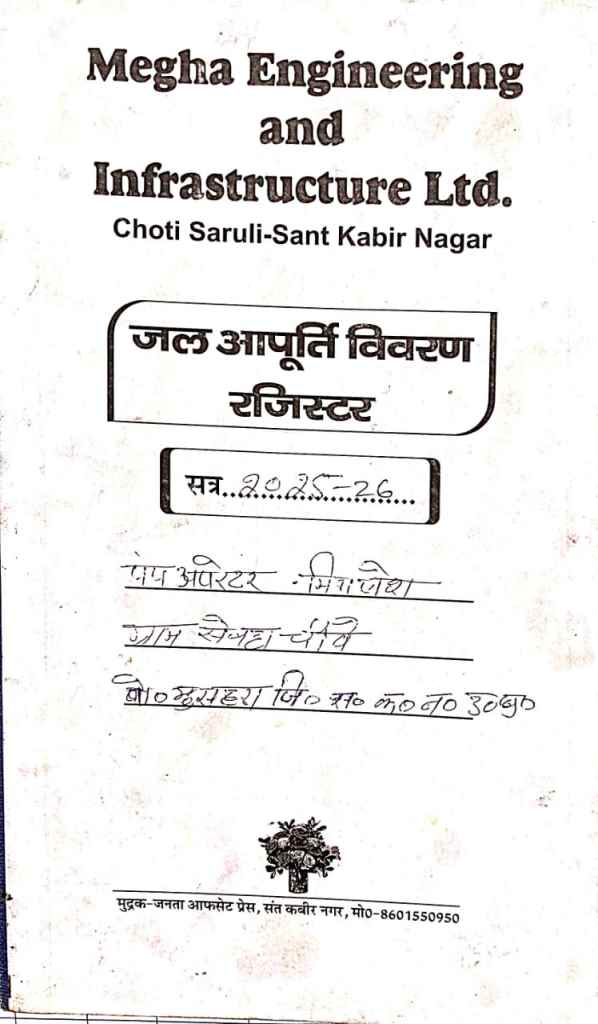 Megha Engineering
and
Infrastructure Ltd.
Choti Saruli-Sant Kabir Nagar
जल आपूर्ति विवरण
रजिस्टर
सत्र..2025-26...
पंप अपरेटर
ग्राम सेवहा चौबे
पो० मुसहरा जि० स० क० न० उ०प्र०
मुद्रक-जनता आफसेट प्रेस, संत कबीर नगर, मो0-8601550950